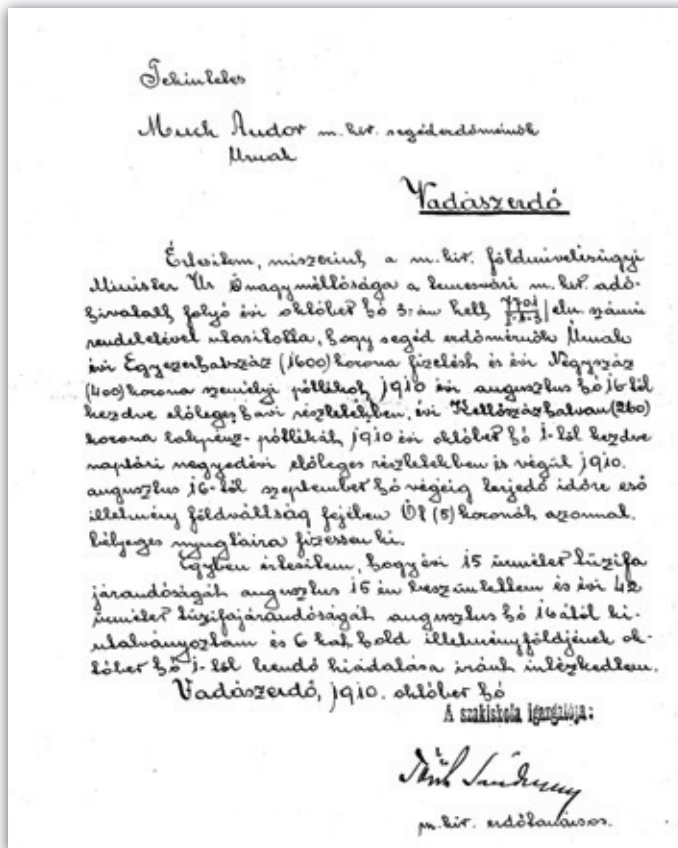 Tekintetes
Muck Andor m. kir. segéderdőmérnök
Urnak
Vadászerdő
Értesitem, miszerint a m. kir. földmivelésügyi
Minister Ur Őnagyméltósága a temesvári m. kir. adó-
hivatalt folyó évi október hó 3-án kelt 7701/I-A-3 eln. számú
rendeletével utasitotta, hogy segéd erdőmérnök Urnak
évi Egyezerhatszáz (1600) korona fizetést és évi Négyszáz
(400) korona személyi pótlékot 1910 évi augusztus hó 16-tól
kezdve előleges havi részletekben, évi Kettőszázhatvan (260)
korona lakpénz-pótlékát 1910 évi október hó 1-től kezdve
naptári negyedévi előleges részletekben és végül 1910.
augusztus 16-tól szeptember hó végéig terjedő időre eső
illetmény földváltság fejében Öt (5) koronát azonnal
bélyeges nyugtáira fizessen ki.
Egyben értesitem, hogy évi 15 ürméter tüzifa
járandóságát augusztus 15 én beszüntettem és évi 42
ürméter tüzifajárandóságát augusztus hó 16ától ki-
utalványoztam és 6 kat. hold illetményföldjének ok-
tóber hó 1-től leendő kiadatása iránt intézkedtem.
Vadászerdő, 1910. október hó
A szakiskola igazgatója:
m. kir. erdőtanácsos.